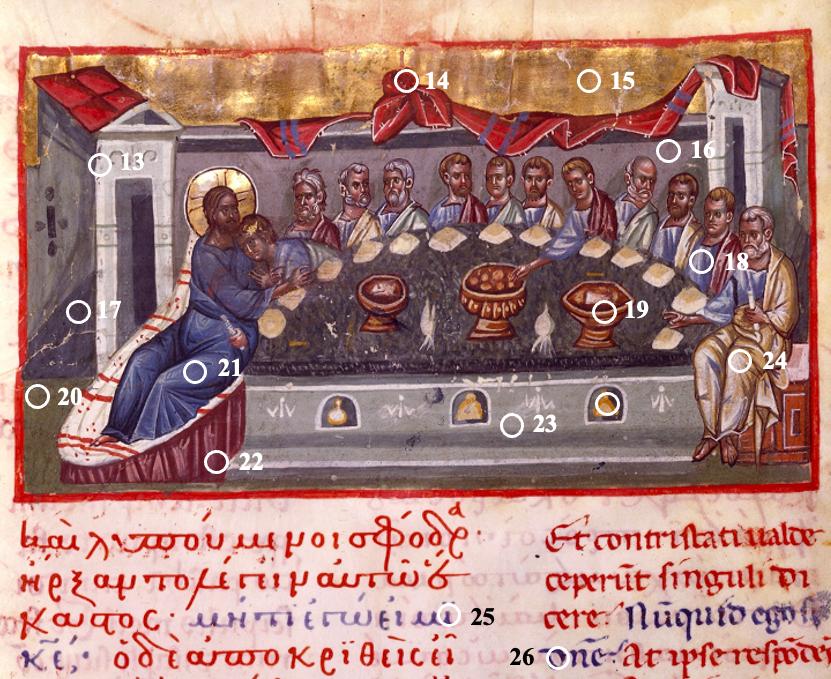 14
15
16
13
18
17
19
24
21
20
23
22
καὶ λυπούμενοι σφόδρα· Et contristati ualde
ἤρξαντο λέγειν αὐτῶ ἕ ceperūt singuli di
καστος· μήτι ἐγώ εἰμι 25 cere. Nūquid ego
κ̅ε̅· ὁ δὲ ἀποκριθεὶς εἶ 26 Dn̄e. At ipse respōdeń